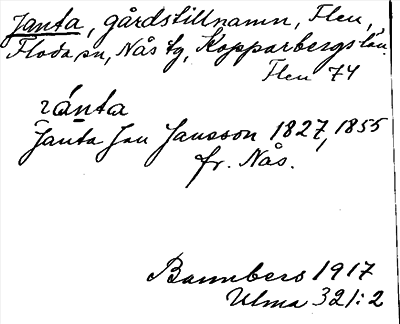 Janta, gårdstillnamn, Flen,
Floda sn, Nås tg, Kopparbergs län.
Flen 74
ránta
Janta Jan Jansson 1827, 1855
fr. Nås.
Bannbers 1917
Ulma 321:2